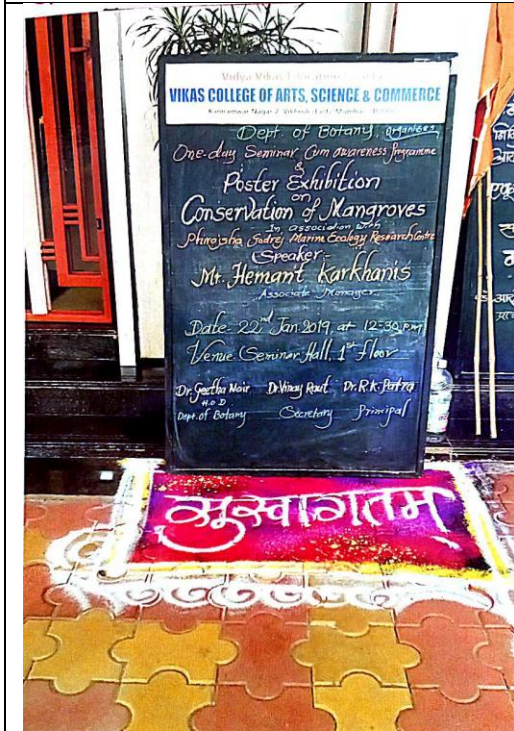 Vidya Vikas Education Society's
VIKAS COLLEGE OF ARTS, SCIENCE & COMMERCE
Kannamwar Nagar 2, Vikhroli (East), Mumbai
Dept. of Botany, organizes
One-day Seminar Cum awareness Programme
&
Poster Exhibition
on
Conservation of Mangroves
In association with
Phirojsha Godrej Marine Ecology Research Centre
Speaker:-
Mr. Hemant Karkhanis
Associate Manager
Date- 22nd Jan 2019, at 12-30 pm
Venue: Seminar Hall, 1st floor
Dr. Geetha Nair Dr. Vinay Raut Dr. R.K. Patra
H.O.D
Dept. of Botany Secretary Principal
सुस्वागतम्